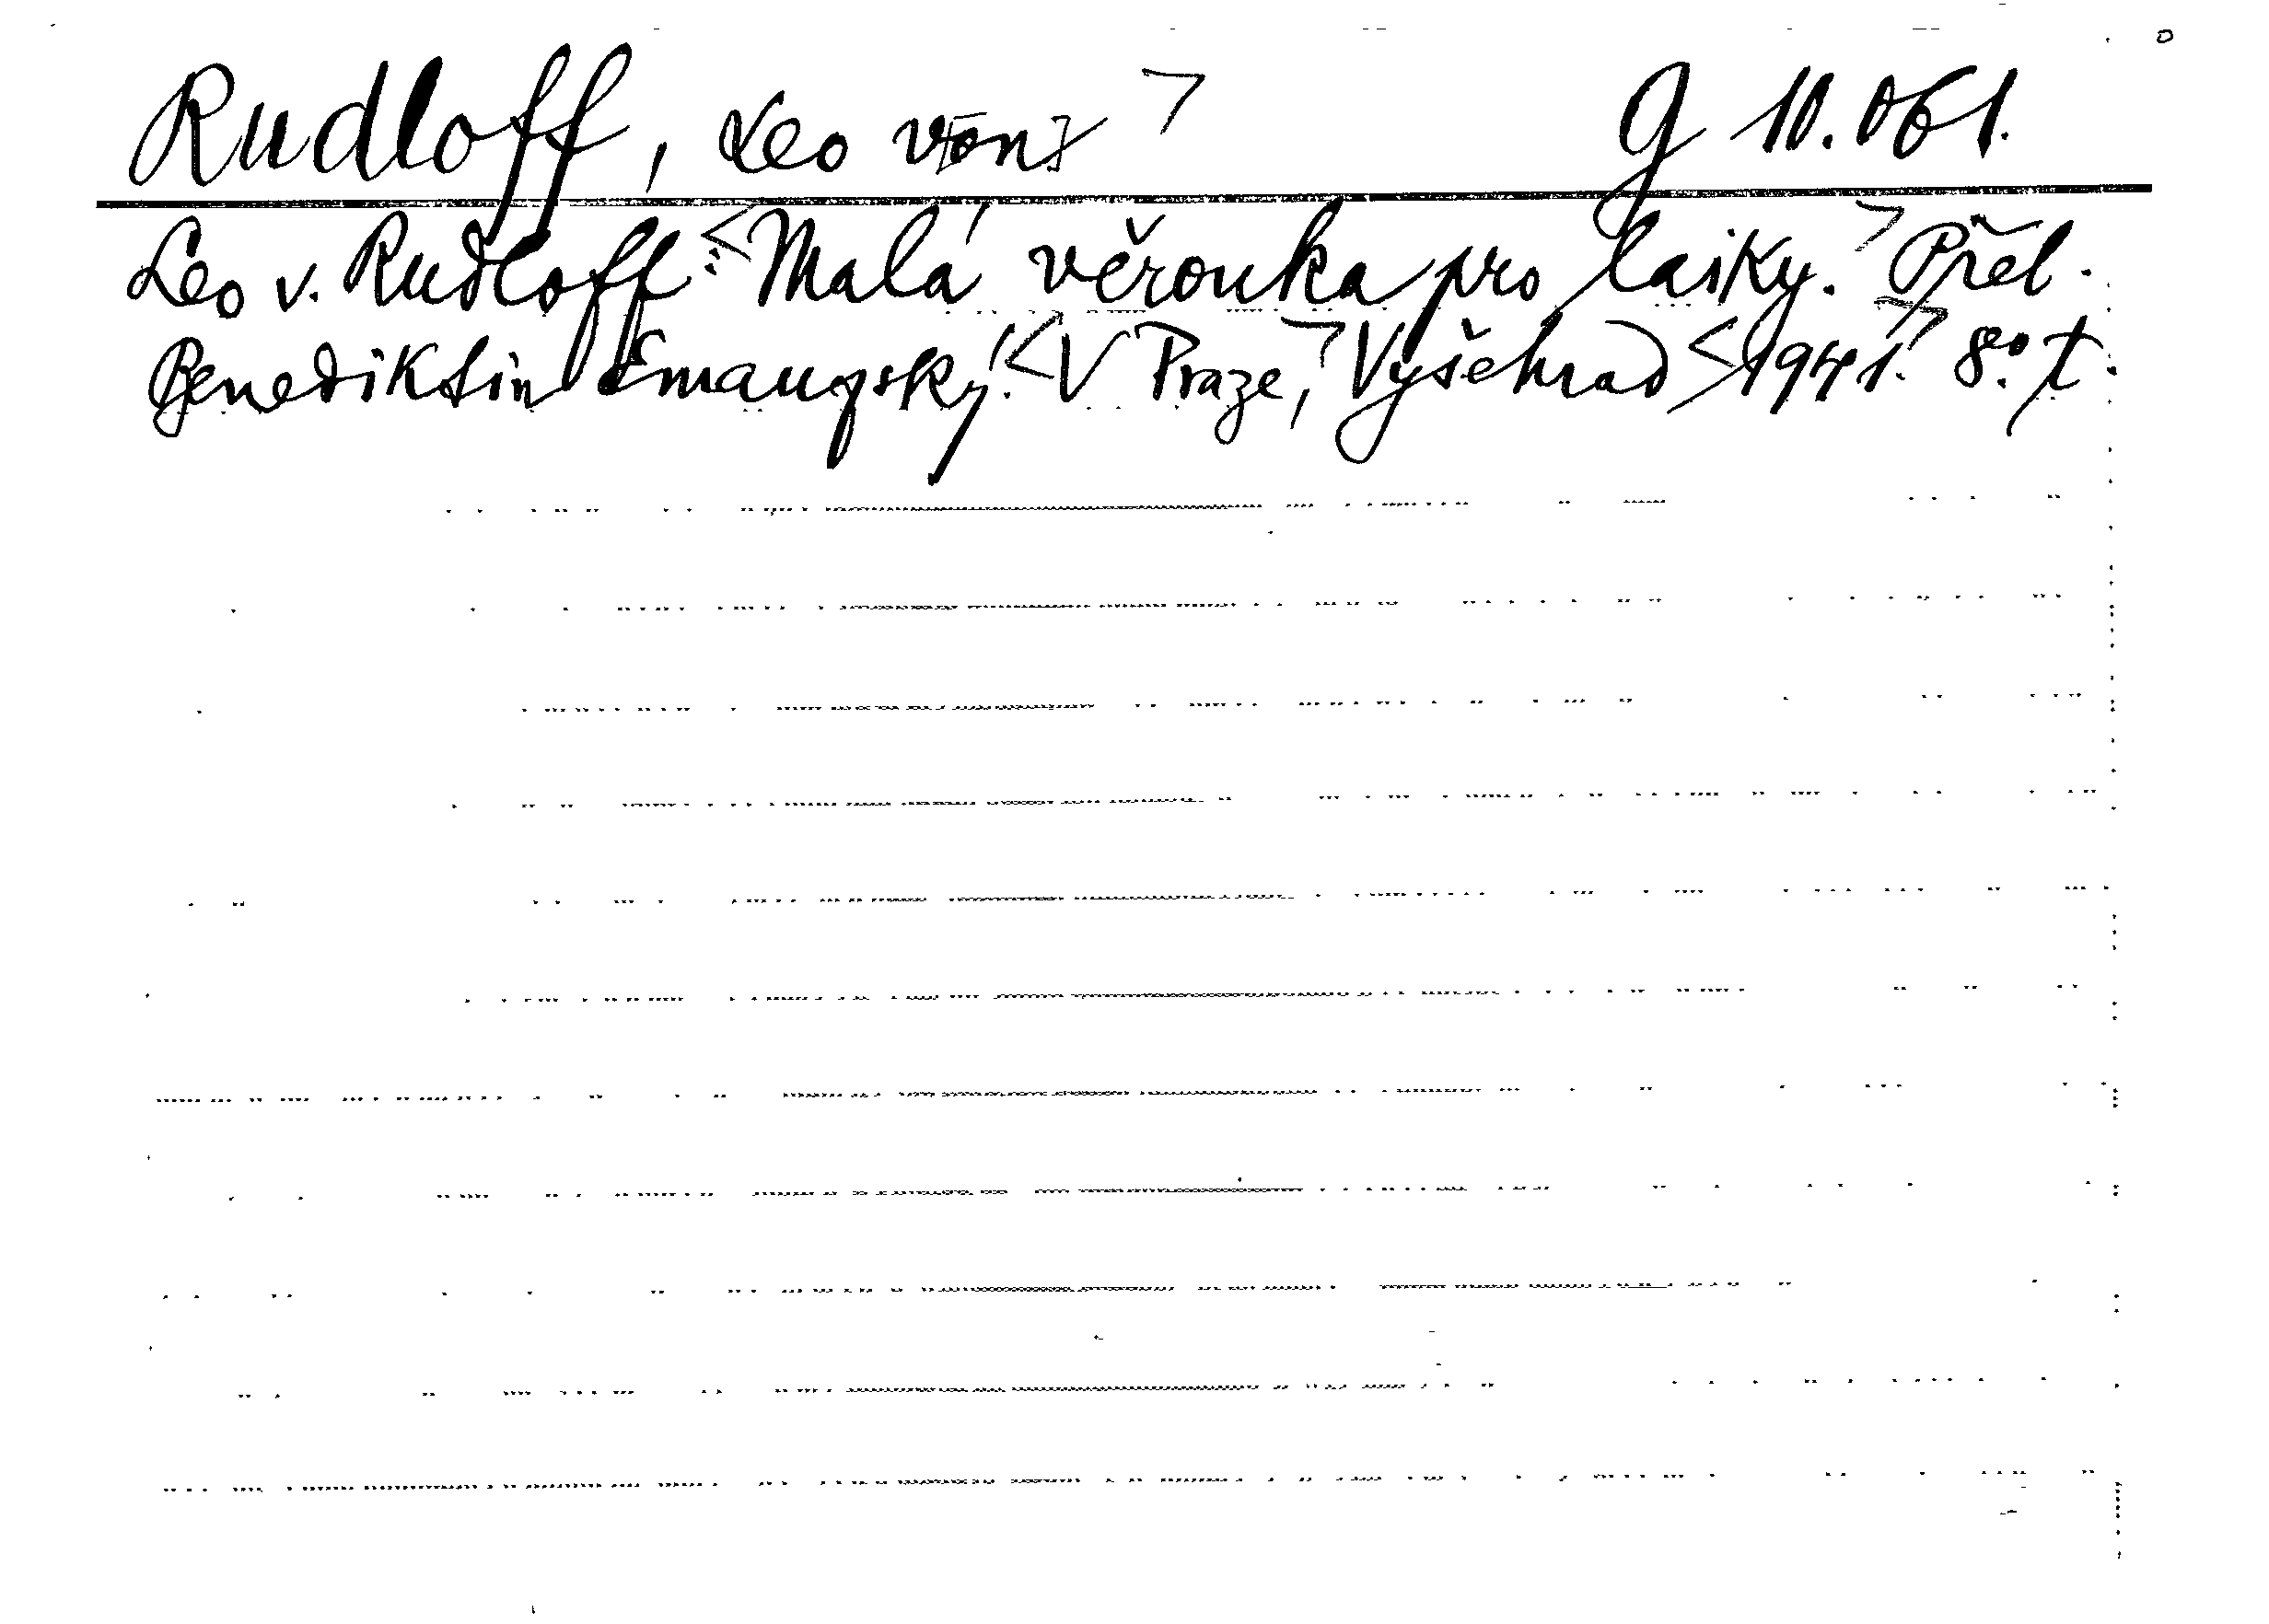 Rudloff, Leo v[on] > G 10.061.
Leo v. Rudloff: <Malá věrouka pro laiky.> Přel.
Benediktin Emauzský. <V Praze,> Vyšehrad <1941.> 8°. t.